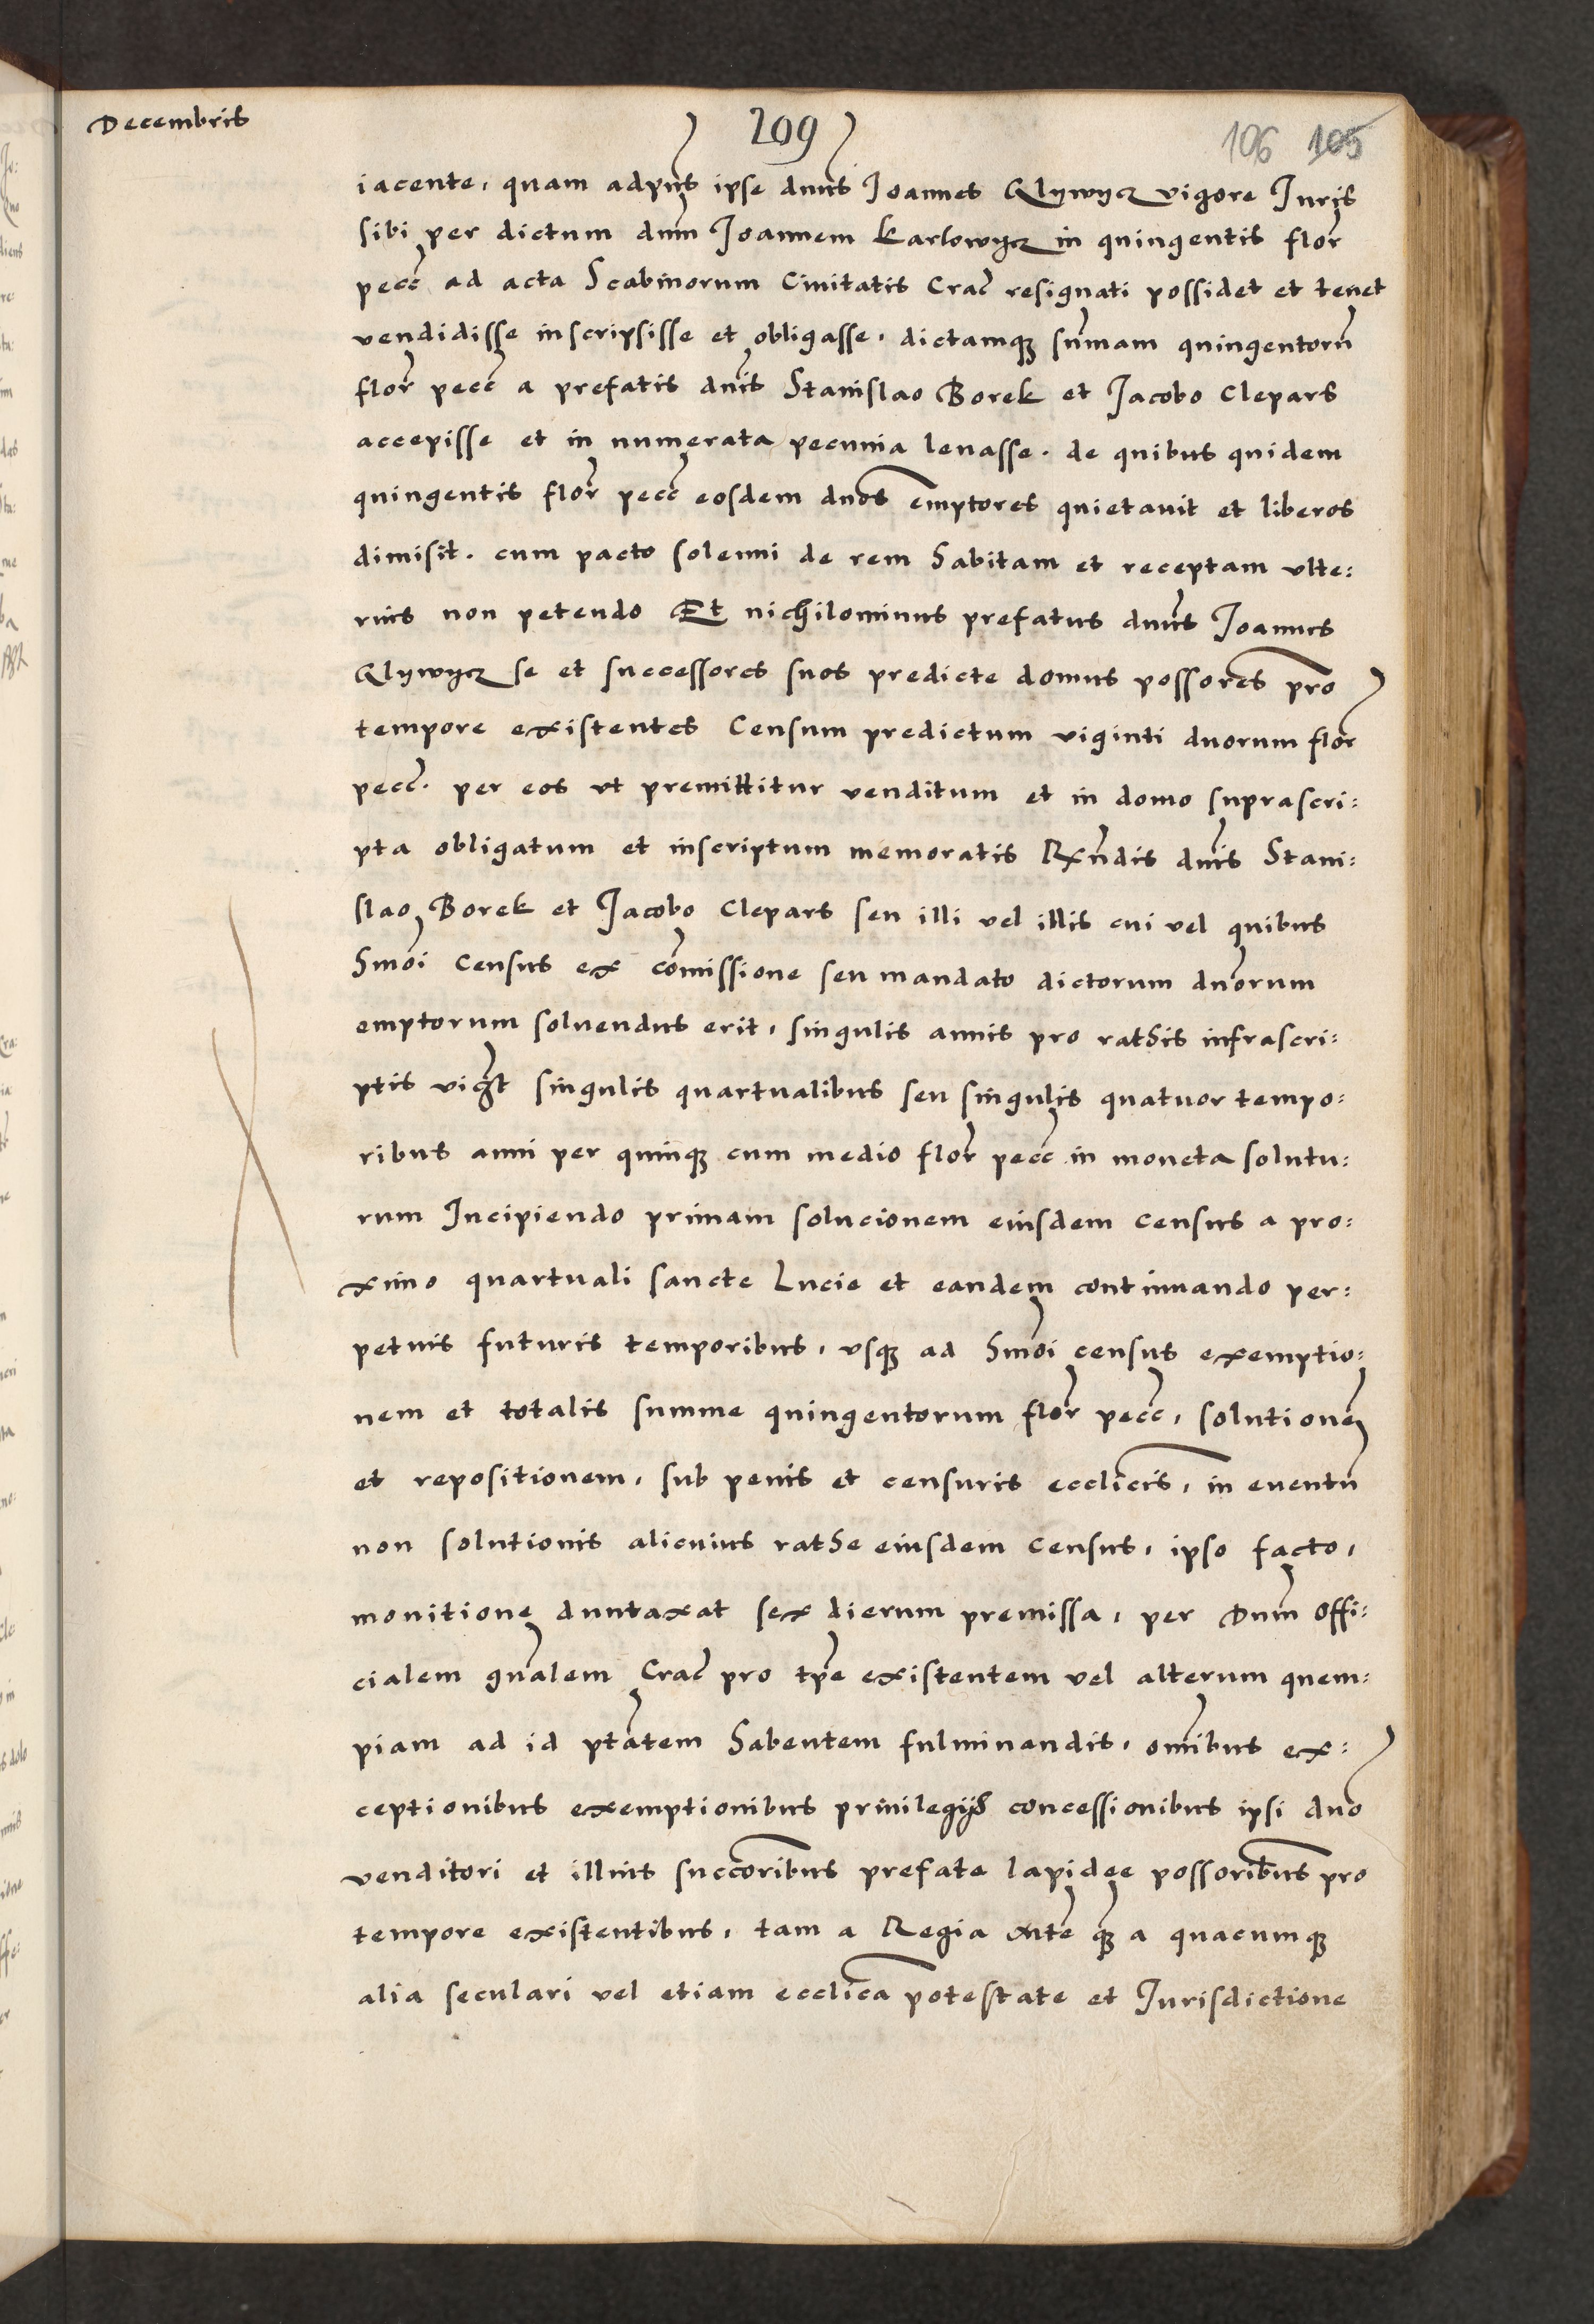 Decembris
209
106 105
iacente, quam adpns ipse dnus Joannes Glywycz vigore Juris
sibi per dictum dnm Joannem Karlowycz in quingentis flor
pecc ad acta Scabinorum Ciuitatis Crac resignati possidet et tenet
vendidisse inscripsisse et obligasse, dictamq; summam quingentorum
flor pecc a prefatis dnis Stanislao Borek et Jacobo Clepars
accepisse et in numerata pecunia leuasse. de quibus quidem
quingentis flor pecc eosdem dnos emptores quietauit et liberos
dimisit. cum pacto solenni de rem habitam et receptam vlte:
rius non petendo Et nichilominus prefatus dnus Joannes
Glywycz se et successores suos predicte domus possores pro
tempore existentes Censum predictum viginti duorum flor
pecc. per eos vt premittitur venditum et in domo suprascri:
pta obligatum et inscriptum memoratis Rxndis dnis Stani:
slao Borek et Jacobo Clepars seu illi vel illis cui vel quibus
hmoi Census ex comissione seu mandato dictorum dnorum
emptorum soluendus erit, singulis annis pro rathis infrascri:
ptis vigzt singulis quartualibus seu singulis quatuor tempo:
ribus anni per quinq; cum medio flor pecc in moneta solutu:
rum Incipiendo primam solucionem eiusdem census a pro:
ximo quartuali sancte Lucie et eandem continuando per:
petuis futuris temporibus, vsq; ad hmoi census exemptio:
nem et totalis summe quingentorum flor pecc, solutionem
et repositionem, sub penis et censuris ecclicis, in euentu
non solutionis alicuius rathe eiusdem Census, ipso facto,
monitione duntaxat sex dierum premissa, per Dnm Offi:
cialem gnalem Crac pro tpe existentem vel alterum quem:
piam ad id ptatem habentem fulminandis, omibus ex:
ceptionibus exemptionibus priuilegijs concessionibus ipsi dno
venditori et illius succoribus prefate lapidee possoribus pro
tempore existentibus, tam a Regia Mte q; a quacumq;
alia seculari vel etiam ecclica potestate et Jurisdictione